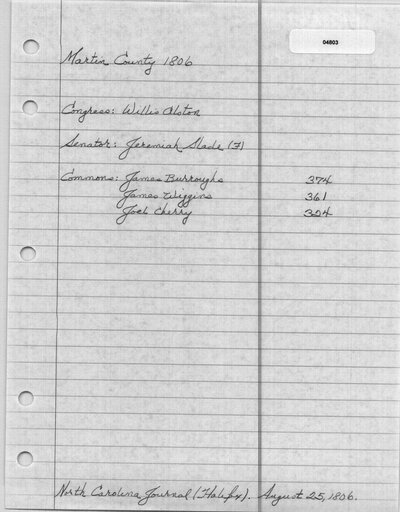 04803
Martin County 1806
Congress: Willis Alston
Senator: Jeremiah Slade (F)
Commons: James Burroughs 374
James Wiggins 361
Joel Cherry 304
North Carolina Journal (Halifax). August 25, 1806.